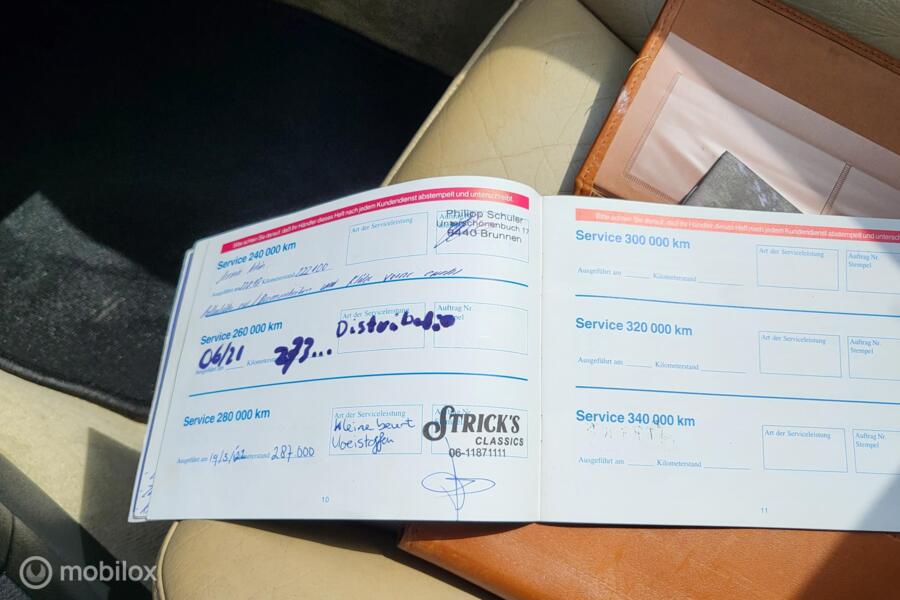 Bitte achten Sie darauf, daß Ihr Händler dieses Heft nach jedem Kundendienst abstempelt und unterschreibt.
Service 240 000 km
Art der Serviceleistung
Philipp Schuler
Unterschönenbuch 17
6440 Brunnen
Ausgeführt am Kilometerstand 222400
und vorne
Service 260 000 km
Art der Serviceleistung
Auftrag Nr.
06/21
Ausgeführt am Kilometerstand 273...
Service 280 000 km
Art der Serviceleistung
Kleine beurt
Vloeistoffen
STRICK'S
CLASSICS
06-11871111
Ausgeführt am 19/5/22 Kilometerstand 287.000
10
Bitte achten Sie darauf, daß Ihr Händler dieses Heft nach jedem Kundendienst abstempelt und unterschreibt.
Service 300 000 km
Art der Serviceleistung
Auftrag Nr.
Stempel
Ausgeführt am Kilometerstand
Service 320 000 km
Art der Serviceleistung
Auftrag Nr.
Stempel
Ausgeführt am Kilometerstand
Service 340 000 km
Art der Serviceleistung
Auftrag Nr.
Stempel
Ausgeführt am Kilometerstand
11
mobilox